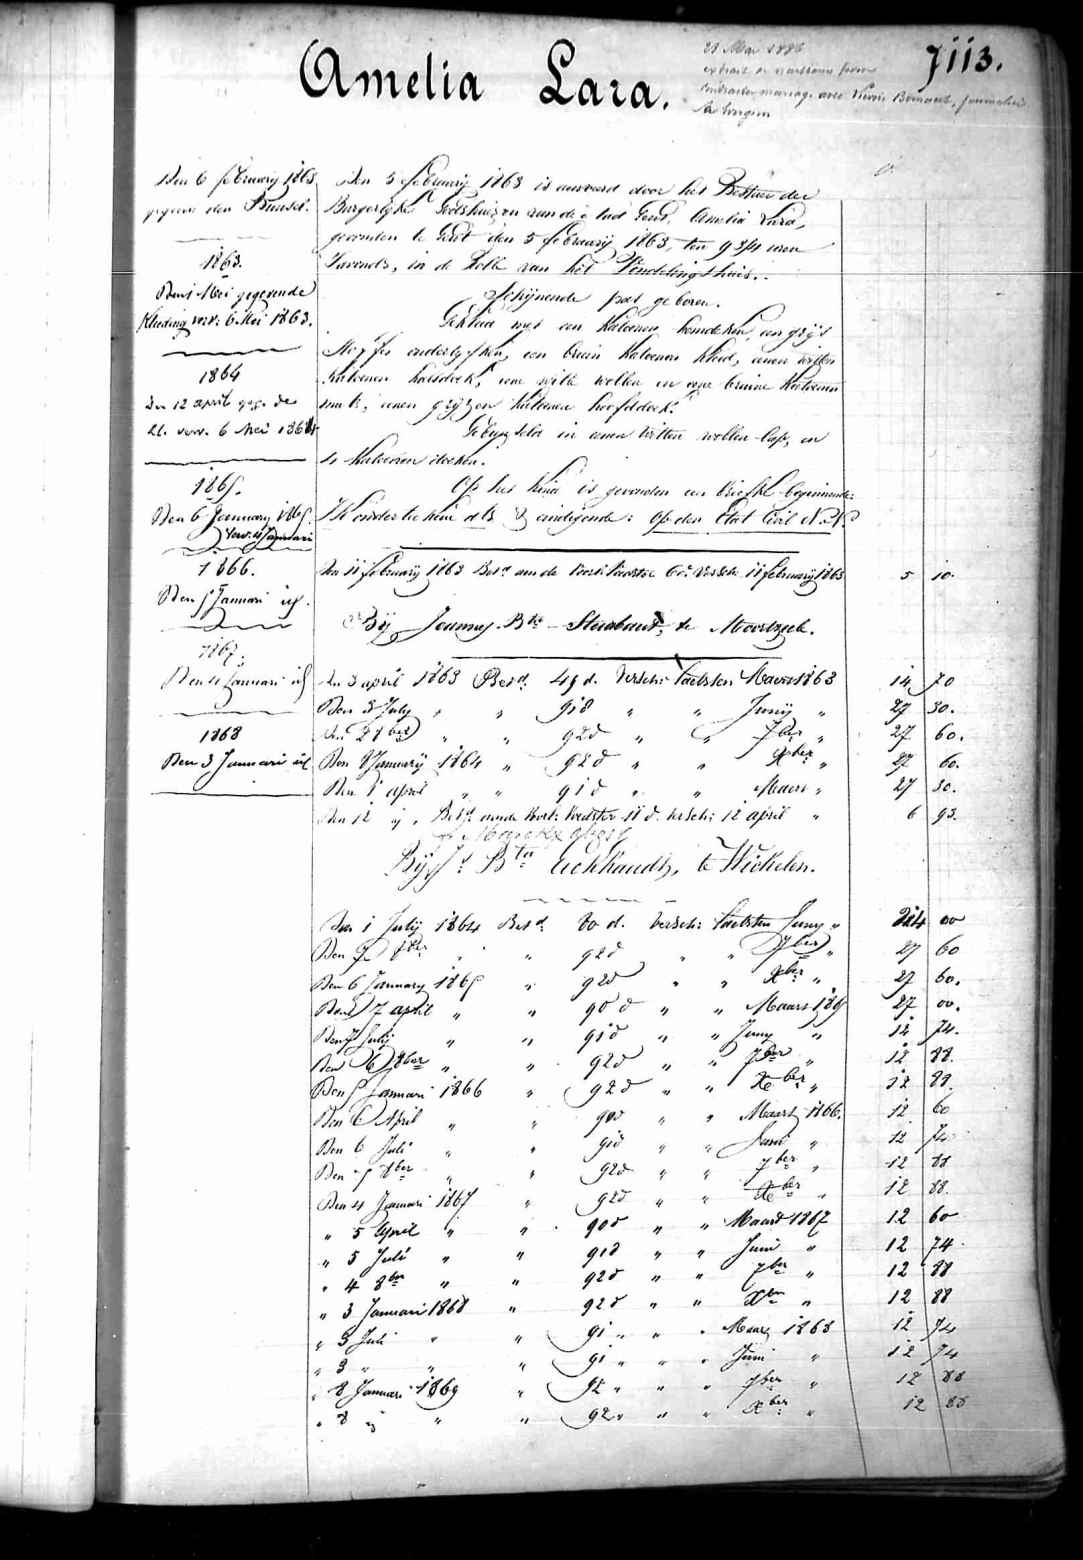 Amelia Lara.
7113.
28 Mai 1886
extrait de naissance pour
contracter mariage avec
Den 6 february 1863
gegeven den
1863.
Den 1 Mei gegevende
Kleeding verv: 6 Mei 1863.
1864
Den 12 april geg. de
kl. verv. 6 Mei 1864
1865.
Den 6 January 1865.
verv. 4 Januari
1866.
Den 5 Januari id.
1867.
Den 4 Januari id
1868
Den 3 Januari id
Den 5 february 1863 is aanveerd door het Bestuer der
Burgerlyke Godshuizen van de stad Gend, Amelia Lara,
gevonden te Gent den 5 february 1863, ten 9 3/4 uren
'savonds, in de Rolle van het Vindelingshuis.
Schijnende pas geboren.
Gekleed met een katoenen hemdeken, een grijs
onderlyfken, een bruin katoenen kleed, eenen witten
katoenen halsdoek, eene witte wollen en eene bruine katoenen
muts, eenen gryzen katoenen hoofddoek.
Gebuzeld in eenen witten wollen lap, en
4 katoenen doeken.
Op het kind is gevonden een briefke beginnende:
Ik onderteekene als & eindigende: op den Etat Civil N.N.
Den 11 february 1863 Betd aen de 6 d. versch. 11 february 1863 5 10.
Bij Joannes Bte te Moortzeele.
Den 3 april 1863 Betd. 49 d. versch: laetsten Maart 1863 14 70
Den 3 July " " 91 d " " Juny " 27 30.
Den 2 8ber " " 92 d " " 7ber " 27 60.
Den 8 January 1864 " 92 d " " Xber " 27 60.
Den 1 april " " 91 d " " Maart " 27 30.
Den 12 id " Betd. aende 11 d. versch: 12 april " 6 93.
Bij Bte Eeckhaudt, te Wichelen.
Den 1 July 1864 Betd. 80 d. versch: laetsten Juny " 24 00
Den 7 8ber " " 92 d " " 7ber " 27 60
Den 6 January 1865 " 92 d " " Xber " 27 60.
Den 7 april " " 90 d " " Maart 1865 27 00.
Den 7 July " " 91 d " " Juny " 12 74.
Den 6 8ber " " 92 d " " 7ber " 12 88.
Den 5 Januari 1866 " 92 d " " Xber " 12 88.
Den 6 April " " 90 d " " Maart 1866. 12 60
Den 6 Juli " " 91 d " " Juni " 12 74
Den 5 8ber " " 92 d " " 7ber " 12 88
Den 4 Januari 1867 " 92 d " " Xber " 12 88.
" 5 April " " 90 d " " Maart 1867 12 60
" 5 Juli " " 91 d " " Juni " 12 74
" 4 8ber " " 92 d " " 7ber " 12 88
" 3 Januari 1868 " 92 d " " Xber " 12 88
" 3 Juli " " 91 " " " Maart 1868 12 74
" 3 " " " 91 " " " Juni " 12 74
" 8 Januari 1869 " 92 " " " 7ber " 12 88
" 8 id " " 92 " " " Xber " 12 88